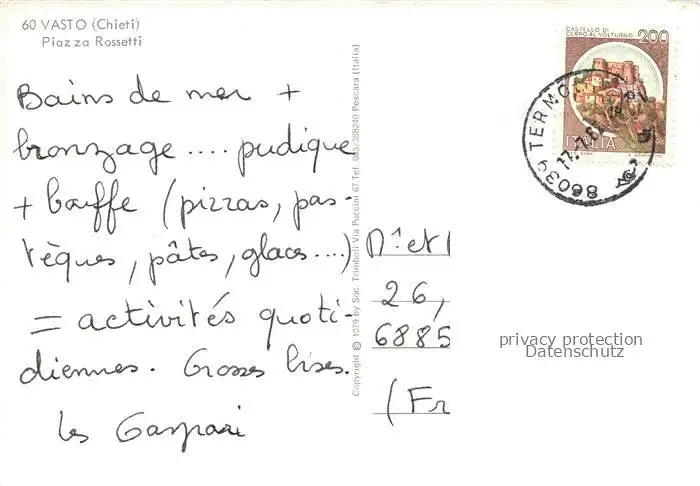 60 VASTO (Chieti)
Piazza Rossetti
Bains de mer +
bronzage .... pudique
+ bouffe (pizzas, pas-
tèques, pâtes, glaces ....)
= activités quoti-
diennes. Grosses bises.
les Gaspari
Copyright © 1979 by Soc. Trimboli Via Puccini 67 Tel. 085/388240 Pescara (Italia)
CASTELLO DI
CERRO AL VOLTURNO
200
ITALIA
86039 TERMOLI
et
26,
6885
(Fr
privacy protection
Datenschutz